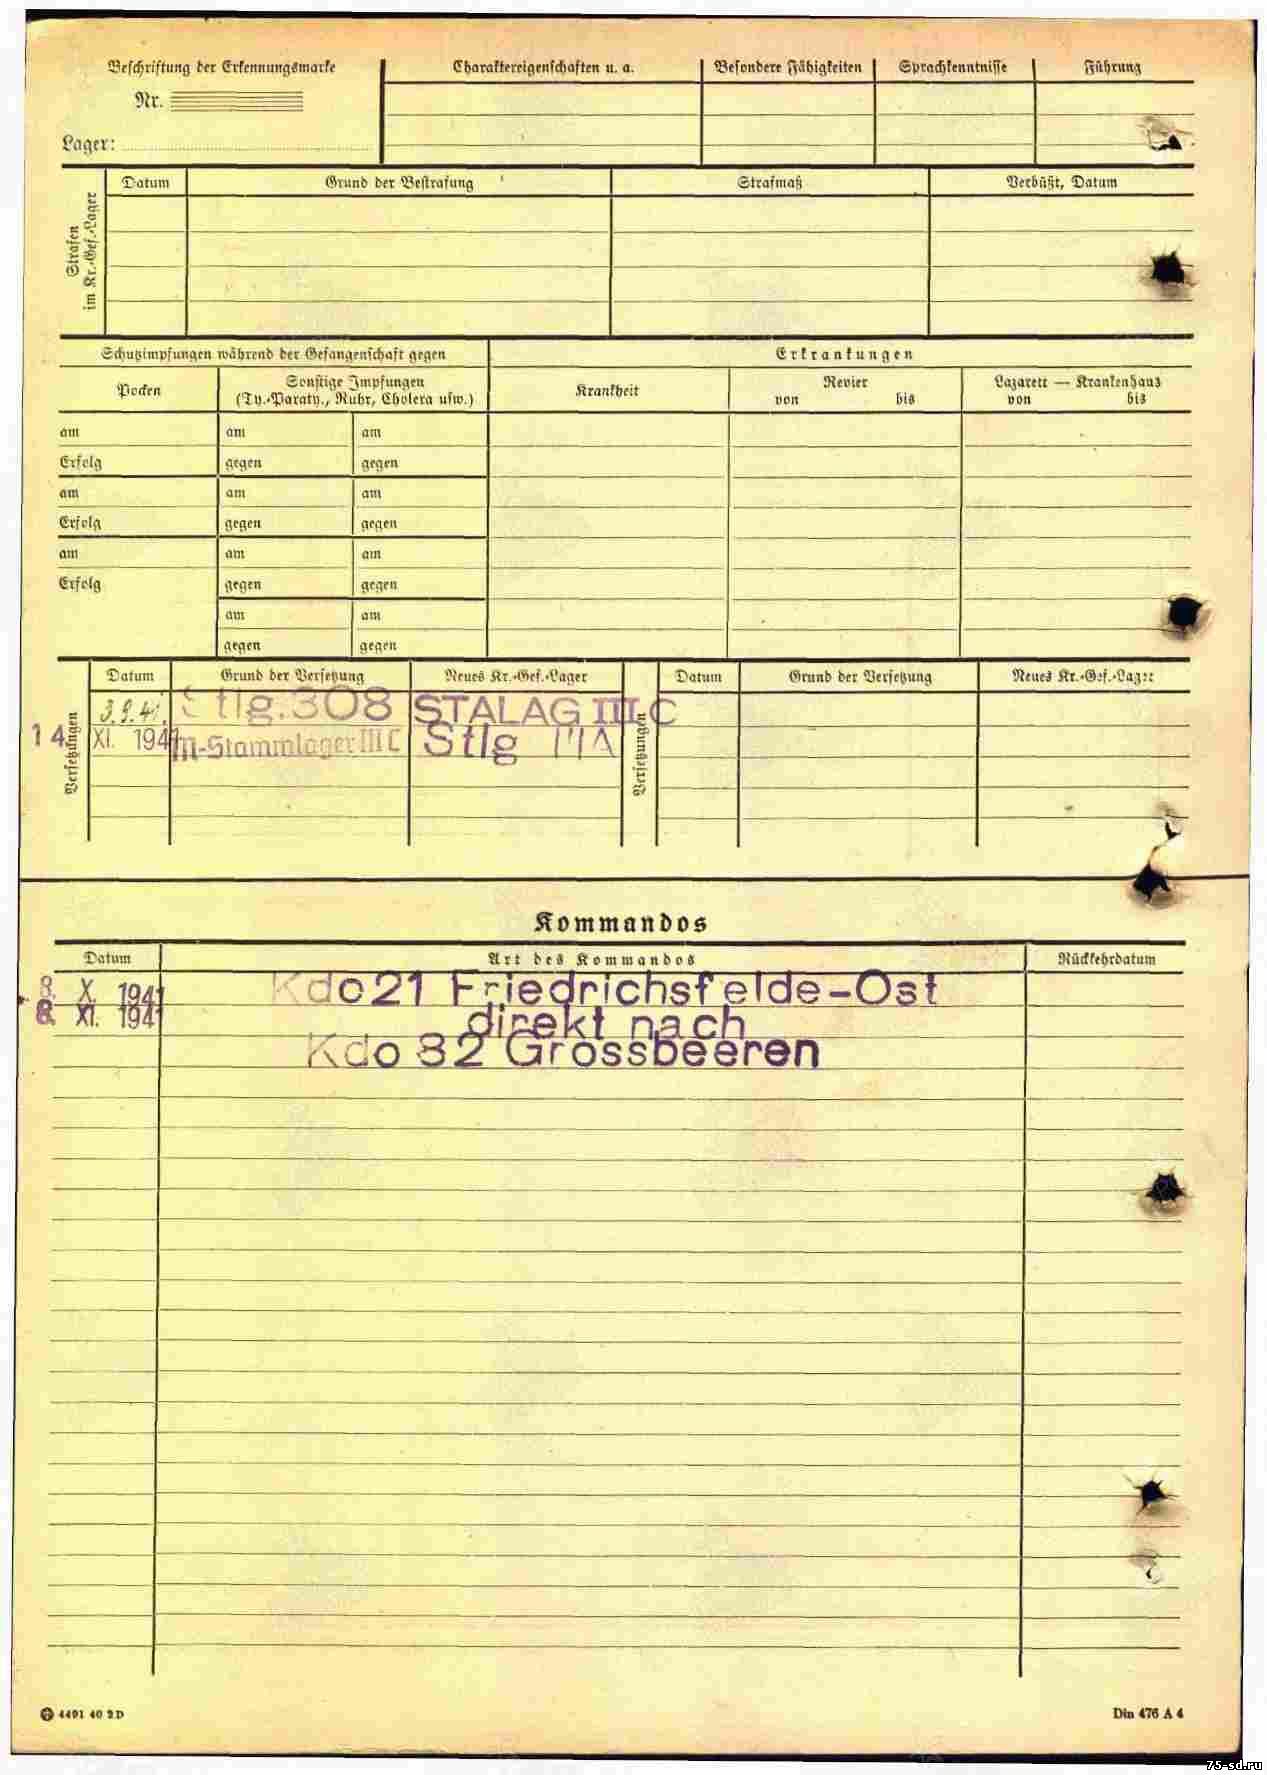 Beschriftung der Erkennungsmarke
Nr.
Lager:
Charaktereigenschaften u. a.
Besondere Fähigkeiten
Sprachkenntnisse
Führung
Strafen
im Kr.-Gef.-Lager
Datum
Grund der Bestrafung
Strafmaß
Verbüßt, Datum
Schutzimpfungen während der Gefangenschaft gegen
Erkrankungen
Pocken
Sonstige Impfungen
(Ty.-Paraty., Ruhr, Cholera usw.)
Krankheit
Revier
von bis
Lazarett — Krankenhaus
von bis
am am am
Erfolg gegen gegen
am am am
Erfolg gegen gegen
am am am
Erfolg gegen gegen
am am
gegen gegen
Versetzungen
Datum Grund der Versetzung Neues Kr.-Gef.-Lager
3.9.41. Stlg.308 STALAG III C
14. XI. 1941 M-Stammlager III C Stlg III A
Versetzungen
Datum Grund der Versetzung Neues Kr.-Gef.-Lager
Kommandos
Datum Art des Kommandos Rückkehrdatum
8. X. 1941 Kdo 21 Friedrichsfelde-Ost
8. XI. 1941 direkt nach
Kdo 82 Grossbeeren
4491 40 2 D
Din 476 A 4
75-sd.ru